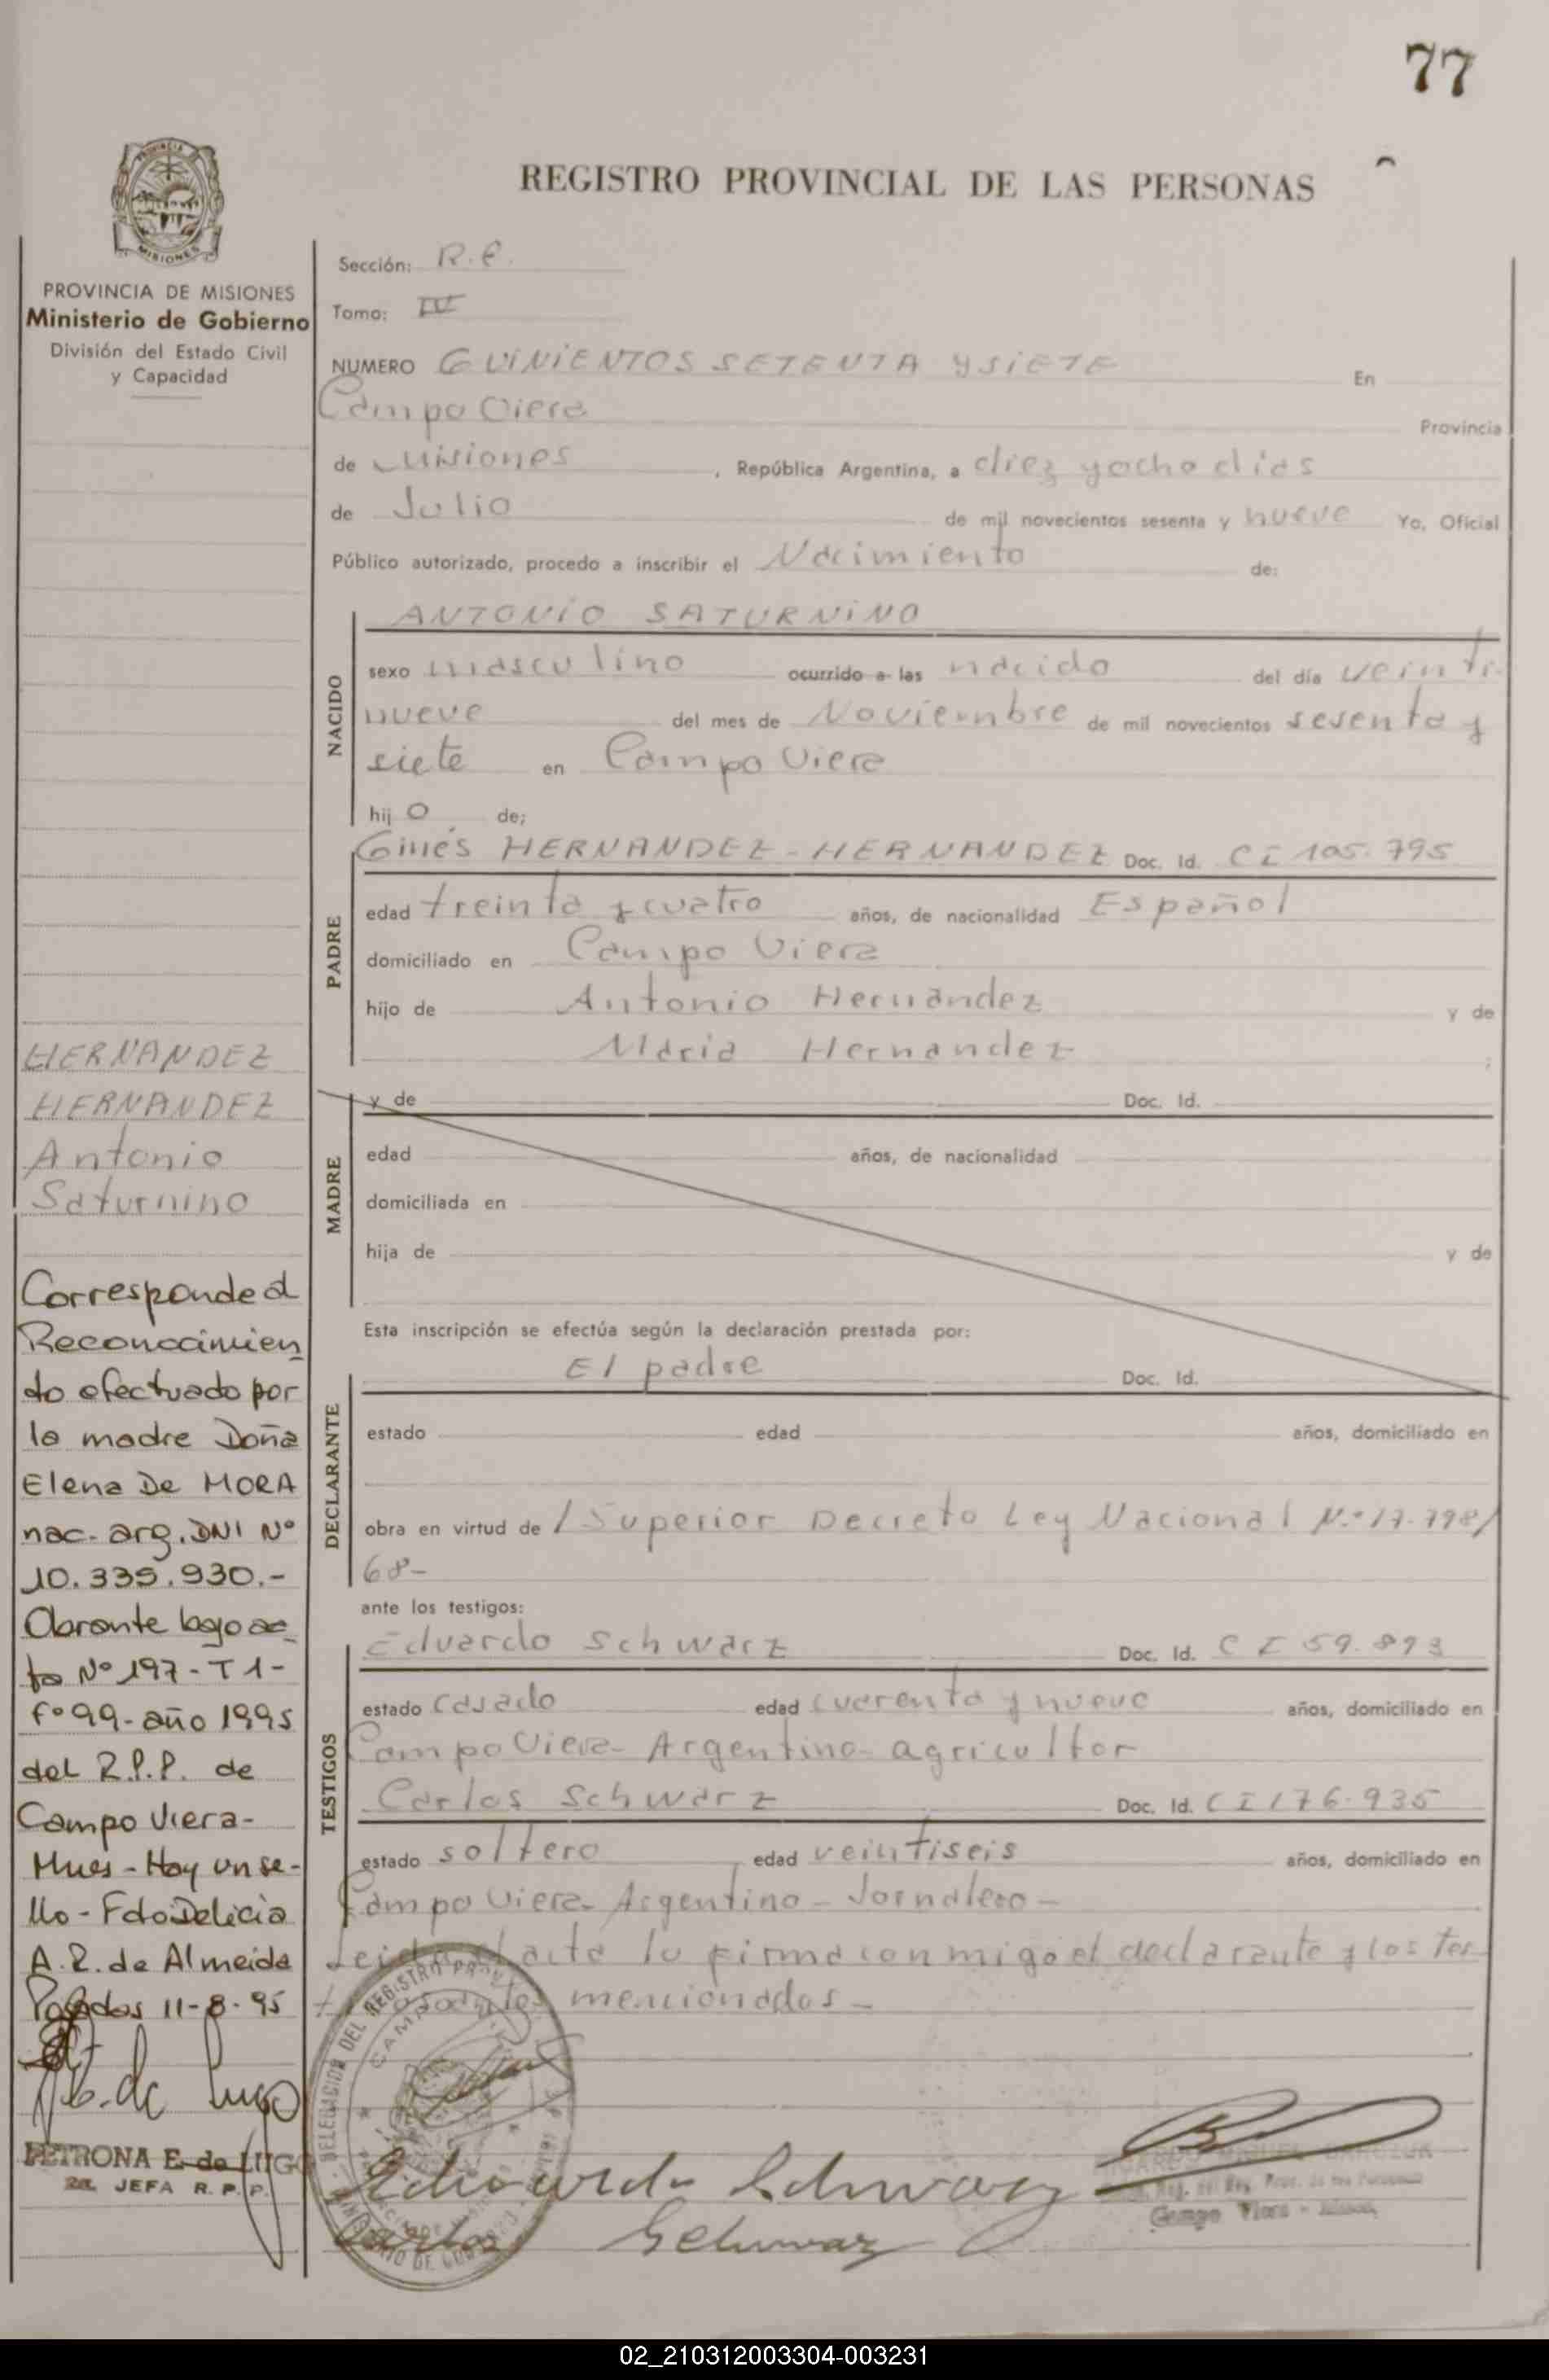 77
REGISTRO PROVINCIAL DE LAS PERSONAS
PROVINCIA
MISIONES
PROVINCIA DE MISIONES
Ministerio de Gobierno
División del Estado Civil
y Capacidad
HERNANDEZ
HERNANDEZ
Antonio
Saturnino
Corresponde al
Reconocimien
to efectuado por
la madre Doña
Elena De MORA
nac. arg. DNI Nº
10.335.930.-
Obrante bajo ac
ta Nº 197 - T 1 -
fº 99 - año 1995
del R.P.P. de
Campo Viera-
Mnes - Hay un se-
llo - Fdo Delicia
A. R. de Almeida
Posadas 11-8-95
PETRONA E. de LUGO
2a. JEFA R. P. P.
Sección: R.E.
Tomo: IV
NUMERO QUINIENTOS SETENTA Y SIETE En
Campo Viera Provincia
de Misiones , República Argentina, a diez y ocho dias
de Julio de mil novecientos sesenta y nueve Yo, Oficial
Público autorizado, procedo a inscribir el Nacimiento de:
NACIDO
ANTONIO SATURNINO
sexo masculino ocurrido a las nacido del día veinti-
nueve del mes de Noviembre de mil novecientos sesenta y
siete en Campo Viera
hij o de;
PADRE
Ginés HERNANDEZ - HERNANDEZ Doc. Id. CI 105.795
edad treinta y cuatro años, de nacionalidad Español
domiciliado en Campo Viera
hijo de Antonio Hernández y de
Maria Hernandez ;
MADRE
y de Doc. Id.
edad años, de nacionalidad
domiciliada en
hija de y de
Esta inscripción se efectúa según la declaración prestada por:
DECLARANTE
El padre Doc. Id.
estado edad años, domiciliado en
obra en virtud de / Superior Decreto Ley Nacional N.º 17.798/
68-
ante los testigos:
TESTIGOS
Eduardo Schwarz Doc. Id. CI 59.893
estado casado edad cuarenta y nueve años, domiciliado en
Campo Viera- Argentino- agricultor
Carlos Schwarz Doc. Id. CI 176.935
estado soltero edad veintiseis años, domiciliado en
Campo Viera- Argentino - Jornalero -
Leida el acta la firma conmigo el declarante y los tes
mencionados -
DELEGACION DEL REGISTRO PROV
Eduardo Schwarz
Carlos Schwarz
Campo Viera - Misiones
02_210312003304-003231